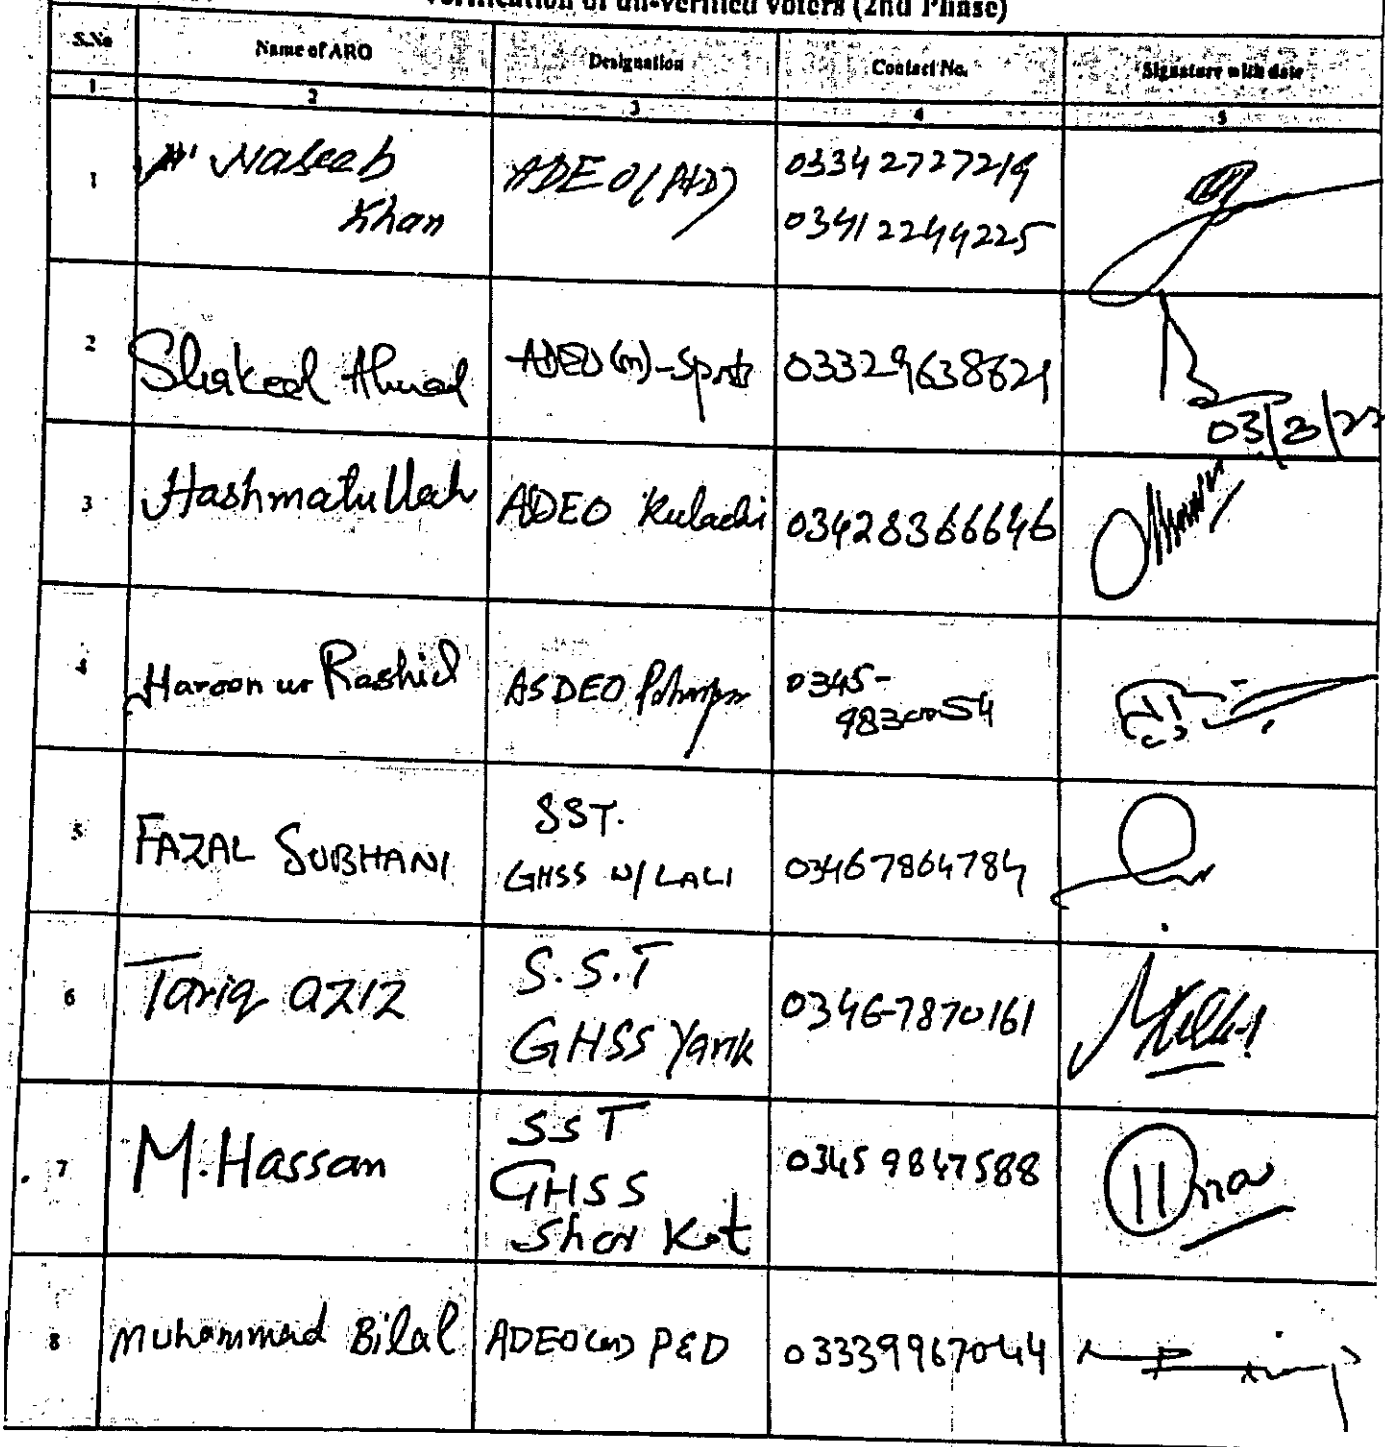 Verification of un-verified voters (2nd Phase)
S.No Name of ARO Designation Contact No. Signature with date
1 2 3 4 5
1 Naseeb Khan ADEO (P&D) 03342727219
03412244225
2 Shakeel Ahmad ADEO (m)-Sports 03329638621
03/3/22
3 Hashmatullah ASDEO Kulachi 03428366646
4 Haroon ur Rashid ASDEO 0345-
9830054
5 FAZAL SUBHANI SST.
GHSS W/LALI 03467864784
6 Tariq aziz S.S.T
GHSS Yarik 0346-7870161
7 M.Hassan SST
GHSS
Shor Kot 03459847588
8 Muhammad Bilal ADEO (m) P&D 03339967044